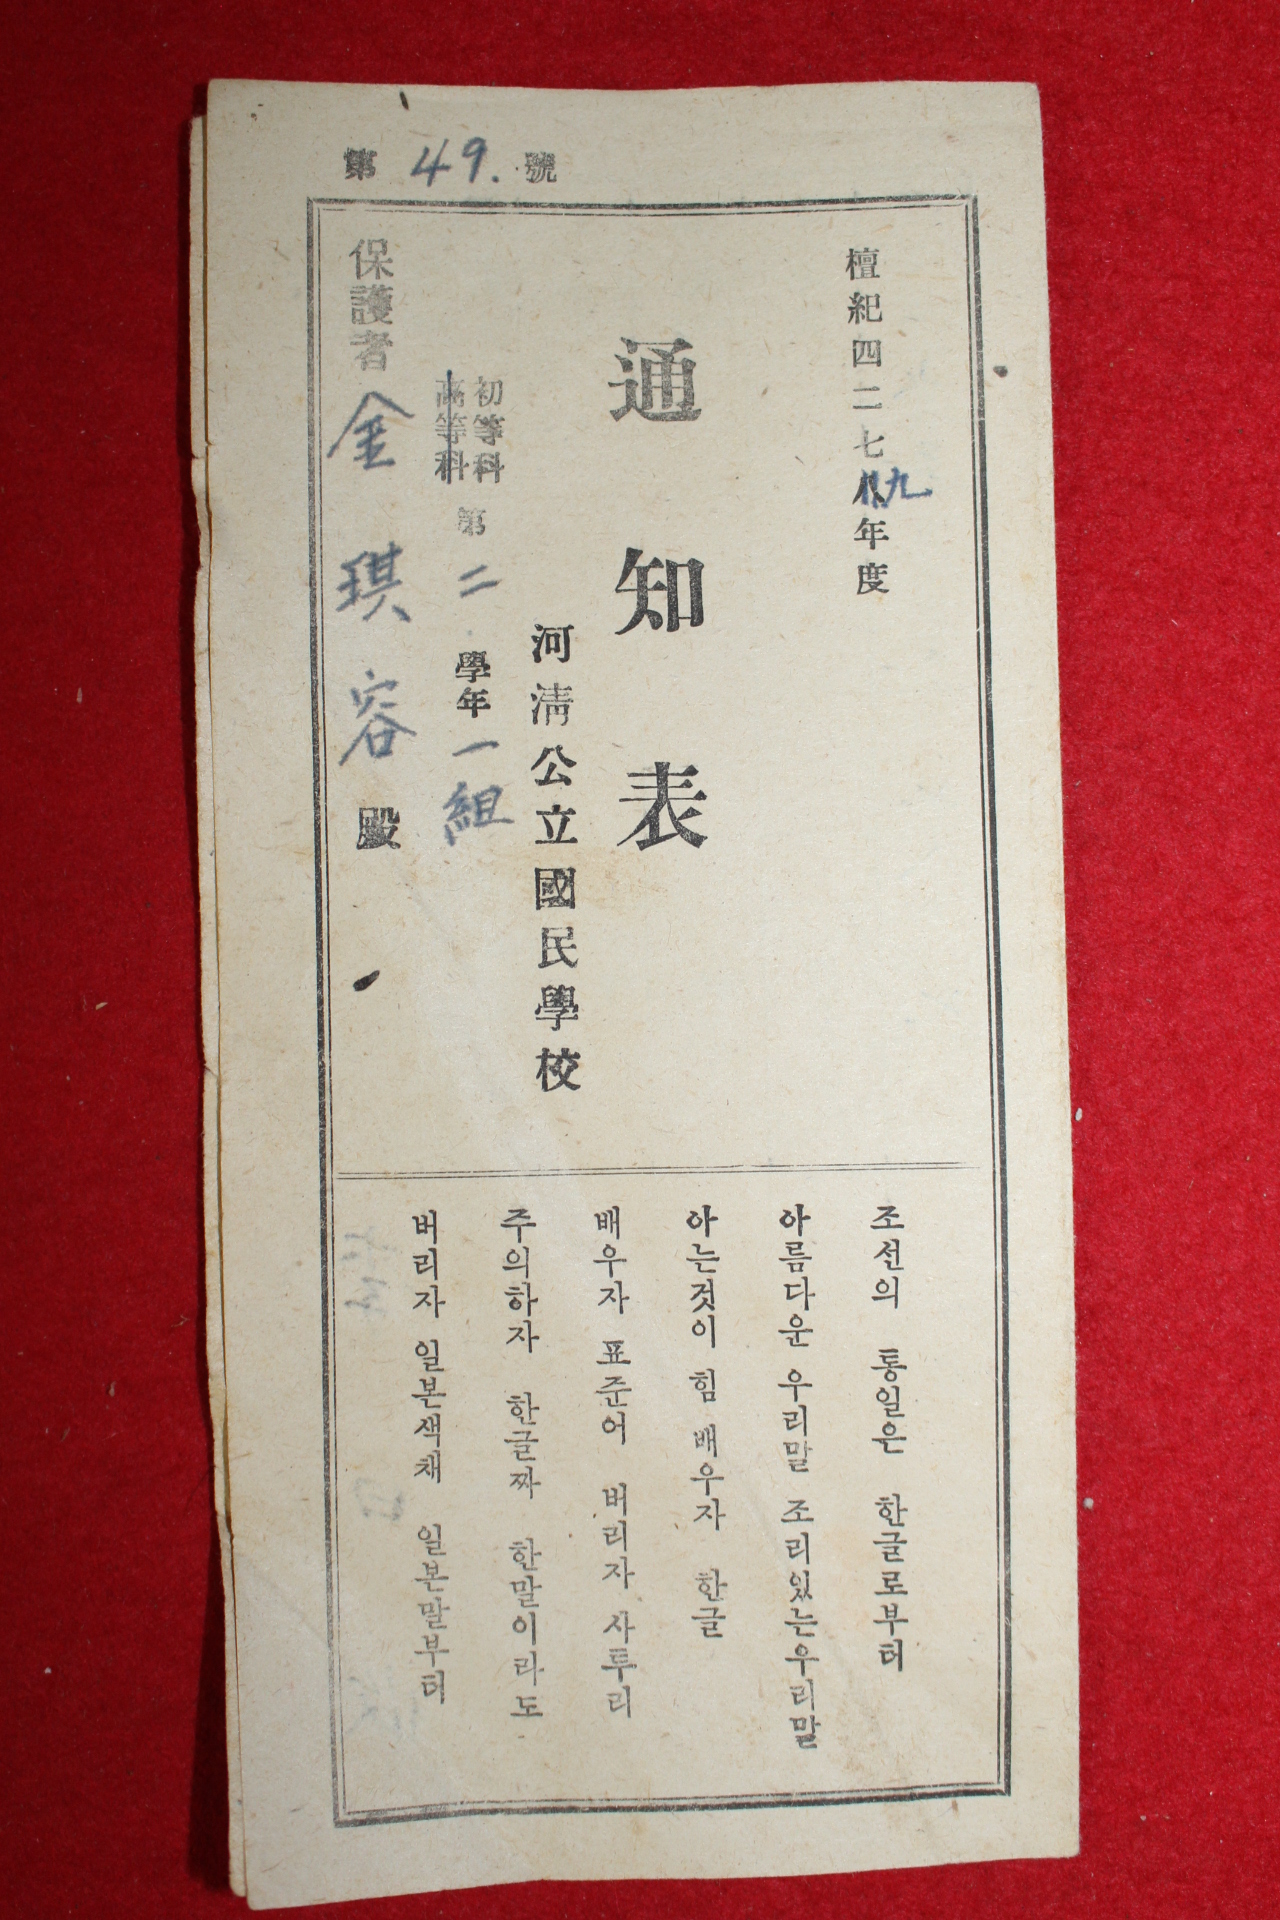 第 49. 號
檀紀四二七九年度
通知表
河淸公立國民學校
初等科
高等科
第二學年一組
保護者 金琪容 殿
조선의 통일은 한글로부터
아름다운 우리말 조리있는우리말
아는것이 힘 배우자 한글
배우자 표준어 버리자 사투리
주의하자 한글짜 한말이라도
버리자 일본색채 일본말부터